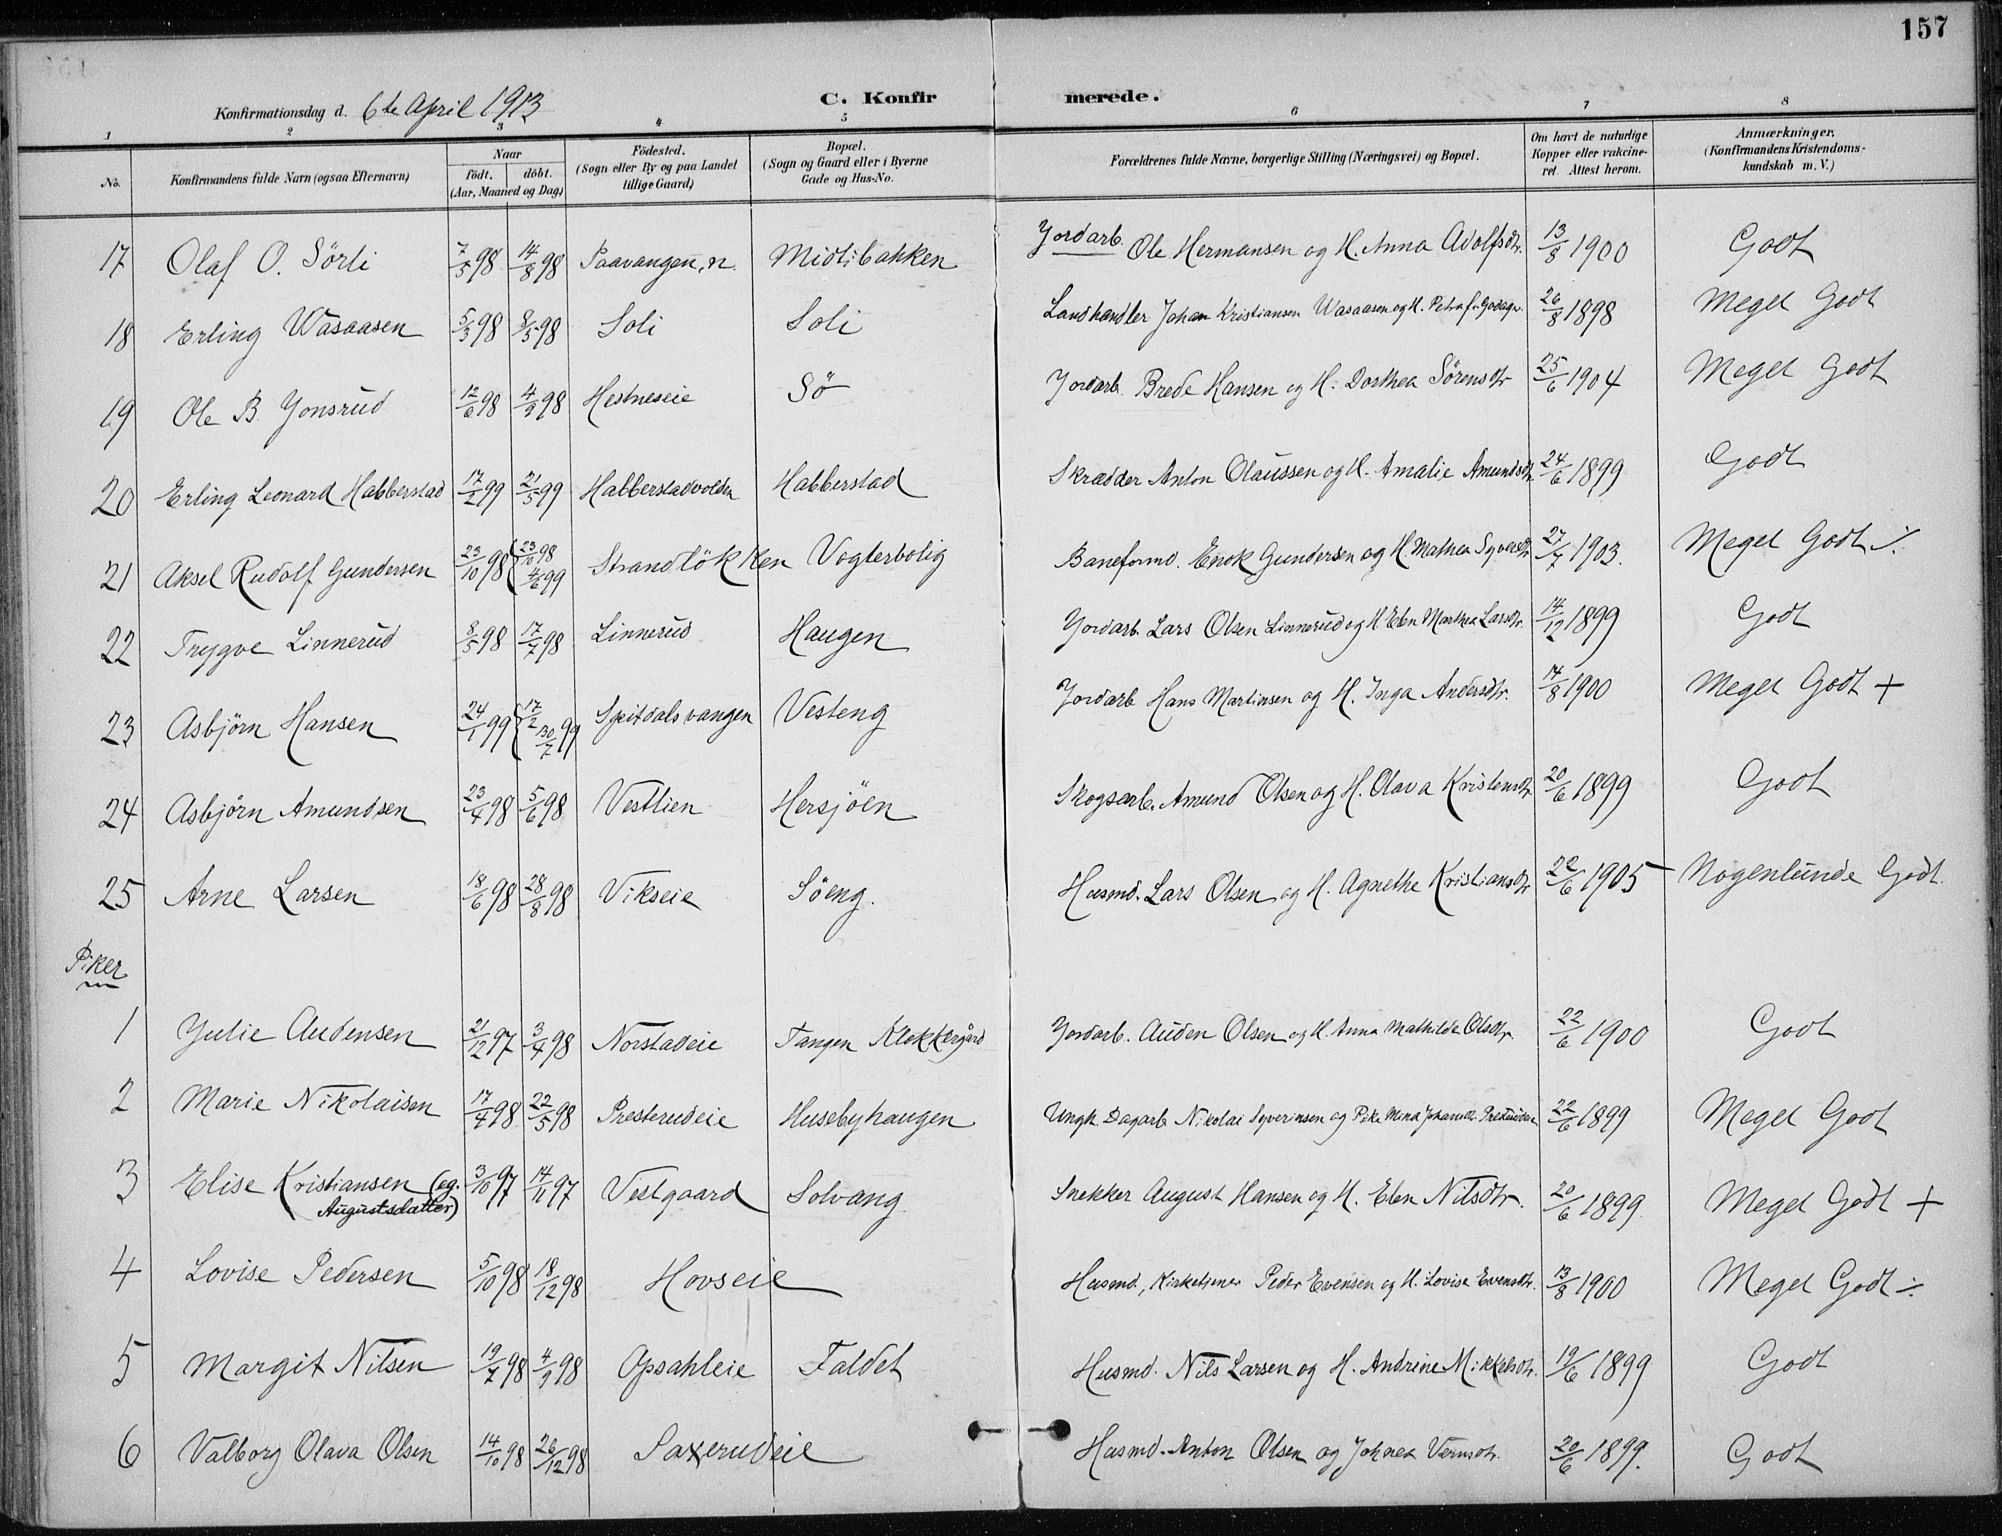 157
Konfirmationsdag d. 6te April 1913
C. Konfirmerede.
1 2 3 4 5 6 7 8
No. Konfirmandens fulde Navn (ogsaa Efternavn) Naar født, døbt. (Aar, Maaned og Dag) Fødested. (Sogn eller By og paa Landet tillige Gaard) Bopæl. (Sogn og Gaard eller i Byerne Gade og Hus-No. Forældrenes fulde Navne, borgerlige Stilling (Næringsvei) og Bopæl. Om havt de naturlige Kopper eller vakcineret. Attest herom. Anmærkninger. (Konfirmandens Kristendomskundskab m. V.)
17 Olaf O. Sörli 7/5 98 14/8 98 Paavangen, n. Midtibakken Jordarb. Ole Hermansen og H. Anna Adolfsdtr. 13/8 1900 Godt
18 Erling Wasaasen 5/3 98 8/5 98 Soli Soli Landhandler Johan Kristiansen Wasaasen og H. Petra 26/8 1898 Meget Godt
19 Ole B. Jonsrud 12/6 98 4/9 98 Hestneseie Sö Jordarb. Brede Hansen og H. Dorthea Sörensdtr 25/6 1904 Meget Godt
20 Erling Leonard Habberstad 17/2 99 21/5 99 Habberstadvolden Habberstad Skrædder Anton Olaussen og H. Amalie Amundsdtr 24/6 1899 Godt
21 Aksel Rudolf Gundersen 23/10 98 (23/10 98 4/6 99 Strandlökken Vogterbolig Baneformd. Enok Gundersen og H Mathea Syversdtr 27/7 1903. Meget Godt ./.
22 Trygve Linnerud 8/5 98 17/7 98 Linnerud Haugen Jordarb. Lars Olsen Linnerud og H. Elen Marthea Larsdtr. 14/12 1899 Godt
23 Asbjörn Hansen 24/1 99 (17/2 30/7 99 Spitdalsvangen Vesteng Jordarb Hans Martinsen og H. Inga Andersdtr. 14/8 1900 Meget Godt +
24 Asbjörn Amundsen 23/4 98 5/6 98 Vestlien Hersjöen Skogsarb. Amund Olsen og H. Olava Kristensdtr 20/6 1899 Godt
25 Arne Larsen 18/6 98 28/8 98 Vikseie Söeng. Husmd. Lars Olsen og H. Agnethe Kristiansdtr 22/6 1905 Nogenlunde Godt.
Piker
1 Julie Audensen 21/12 97 3/4 98 Norstadeie Tangen Klokkergård Jordarb. Auden Olsen og H. Anna Mathilde Olsdtr. 22/6 1900 Godt
2 Marie Nikolaisen 17/4 98 22/5 98 Presterudeie Husebyhaugen Ungk. Dagarb Nikolai Syverinsen og Pike Mina Johansdtr. 22/6 1899 Meget Godt
3 Elise Kristiansen (eg. Augustsdatter) 3/10 97 14/11 97 Vestgaard Solvang Snekker August Hansen og H. Elen Nilsdtr. 20/6 1899 Meget Godt +
4 Lovise Pedersen 5/10 98 18/12 98 Hovseie Husmd., Kirketjener Peder Evensen og H. Lovise Evensdtr. 13/8 1900 Meget Godt ÷
5 Margit Nilsen 19/7 98 4/9 98 Opsahleie Faldet Husmd. Nils Larsen og H. Andrine Mikkelsdtr. 19/6 1899 Godt
6 Valborg Olava Olsen 14/10 98 26/12 98 Saxerudeie Husmd. Anton Olsen og Johnea 20/6 1899. Godt